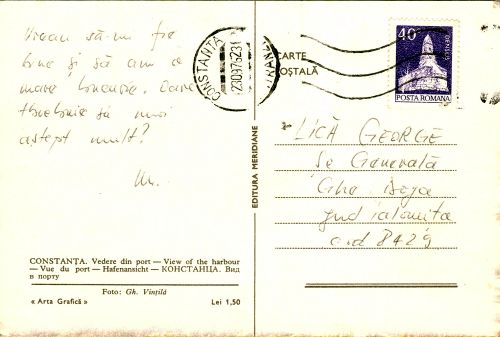 Vreau să-mi fie
bine și să am o
mare bucurie. Care
trebuie să mai
aștept mult?
M.
CONSTANȚA. Vedere din port — View of the harbour
— Vue du port — Hafenansicht — КОНСТАНЦА. Вид
в порту
Foto: Gh. Vințilă
« Arta Grafică »
Lei 1,50
EDITURA MERIDIANE
CONSTANȚA
22.03.76.23
CARTE
POȘTALĂ
40
POSTA ROMANA
LICĂ GEORGE
Șc Generală
Ghe Doja
jud ialomița
cod 8429